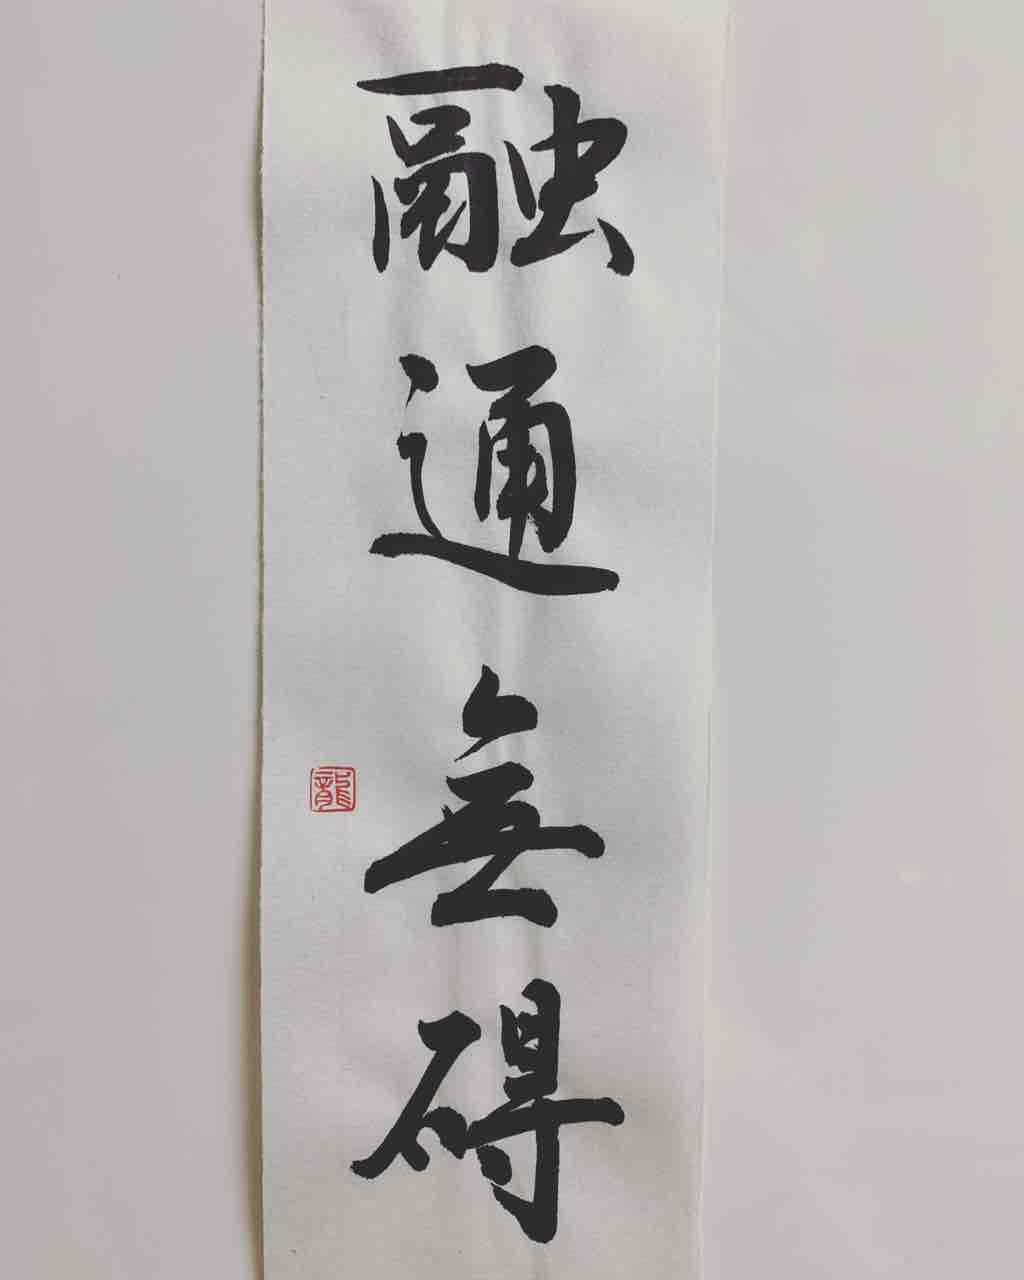 融通無碍
龍